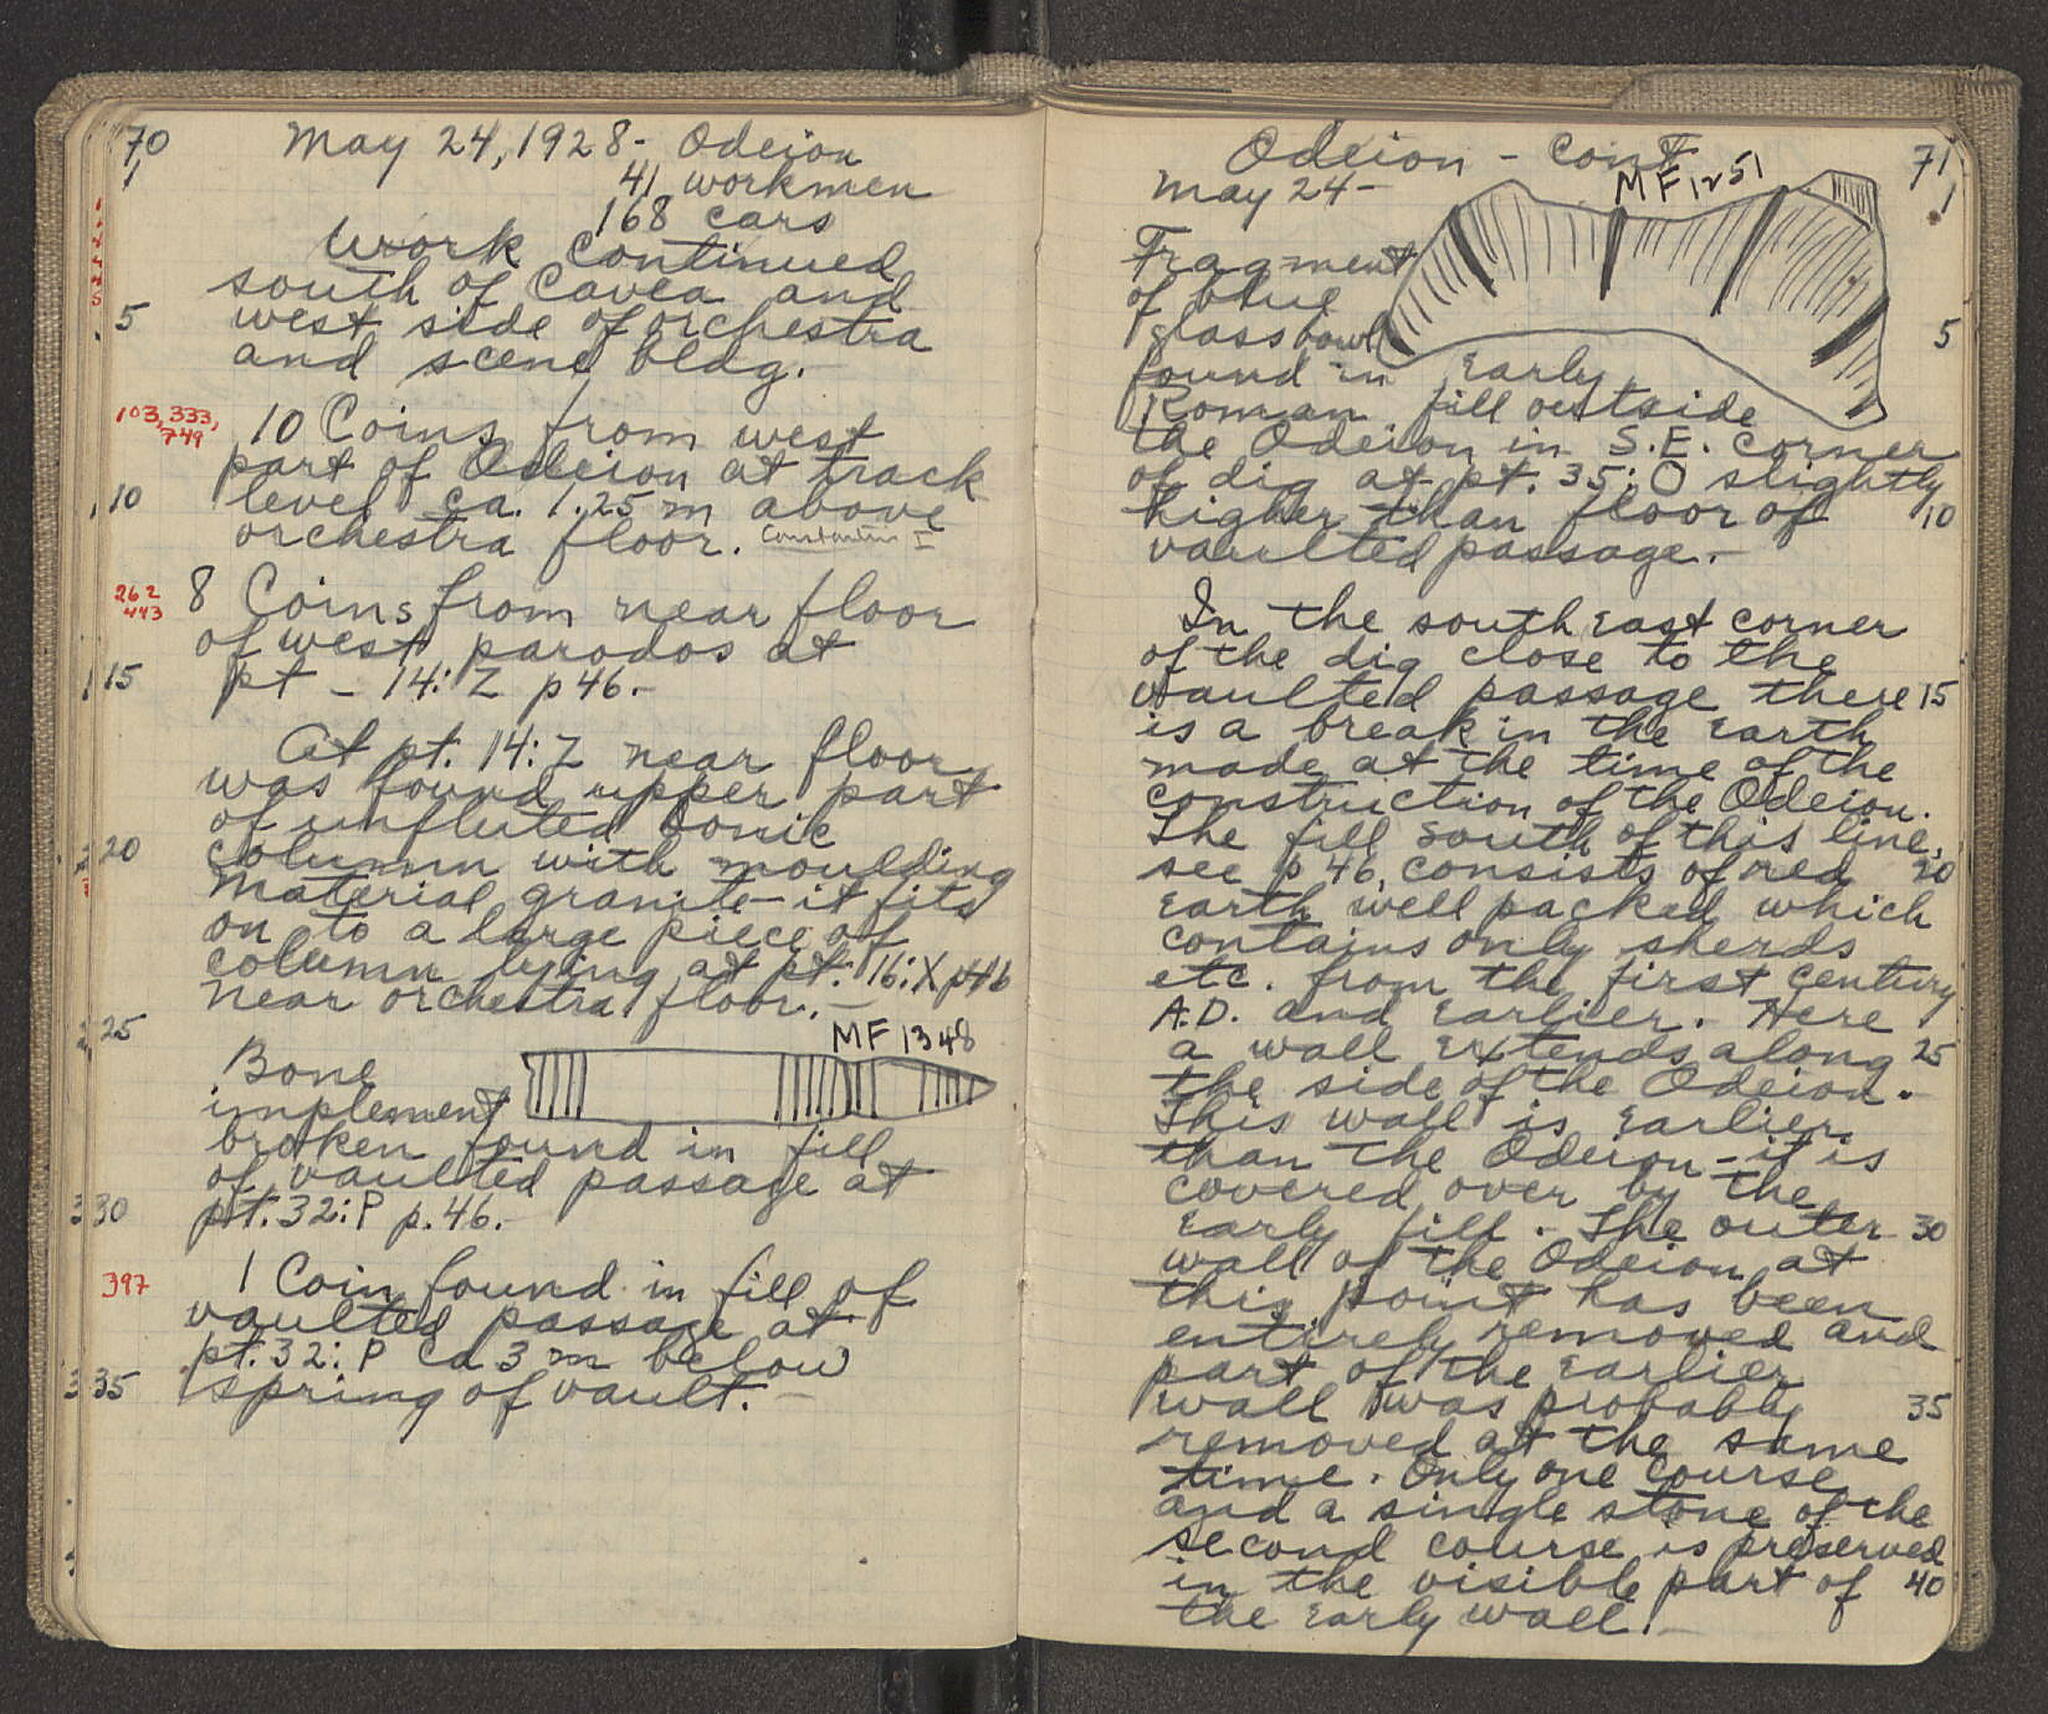 70
May 24, 1928 - Odeion
41 workmen
168 cars
Work continued
south of Cavea and
5 west side of orchestra
and scene bldg.
103,333,
749
10 Coins from west
part of Odeion at track
10 level ca. 1.25 m above
orchestra floor. Constantin I
262
443
8 Coins from near floor
of west parodos at
15 pt - 14:Z p46.-
At pt. 14:Z near floor
was found upper part
of unfluted Ionic
20 column with moulding
material granite - it fits
on to a large piece of
column lying at pt. 16:X p46
near orchestra floor.-
25
MF 1348
Bone
implement
broken found in fill
of vaulted passage at
30 pt. 32:P p.46.-
397
1 Coin found in fill of
vaulted passage at
pt. 32:P ca 3 m below
35 spring of vault.-
71
Odeion - Cont
May 24 -
MF 1251
1
Fragment
of blue
glass bowl 5
found in Early
Roman fill outside
the Odeion in S.E. corner
of dig at pt. 35:O slightly
higher than floor of 10
vaulted passage.-
In the south East corner
of the dig close to the
vaulted passage there 15
is a break in the Earth
made at the time of the
construction of the Odeion.
The fill south of this line,
see p 46, consists of red 20
Earth well packed which
contains only sherds
etc. from the first century
A.D. and Earlier. Here
a wall Extends along 25
the side of the Odeion.
This wall is Earlier
than the Odeion - it is
covered over by the
Early fill. The outer 30
wall of the Odeion at
this point has been
entirely removed and
part of the Earlier
wall was probably 35
removed at the same
time. Only one course
and a single stone of the
second course is preserved
in the visible part of 40
the Early wall.-